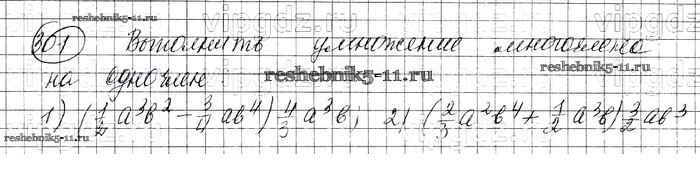 reshebnik5-11.ru
301 Выполнить умножение многочлена
на одночлен. reshebnik5-11.ru reshebnik5-11.ru
1) (1/2 a³b² - 3/4 ab⁴) 4/3 a³b; 2) (2/3 a²b⁴ + 1/2 a³b) 3/2 ab³
reshebnik5-11.ru